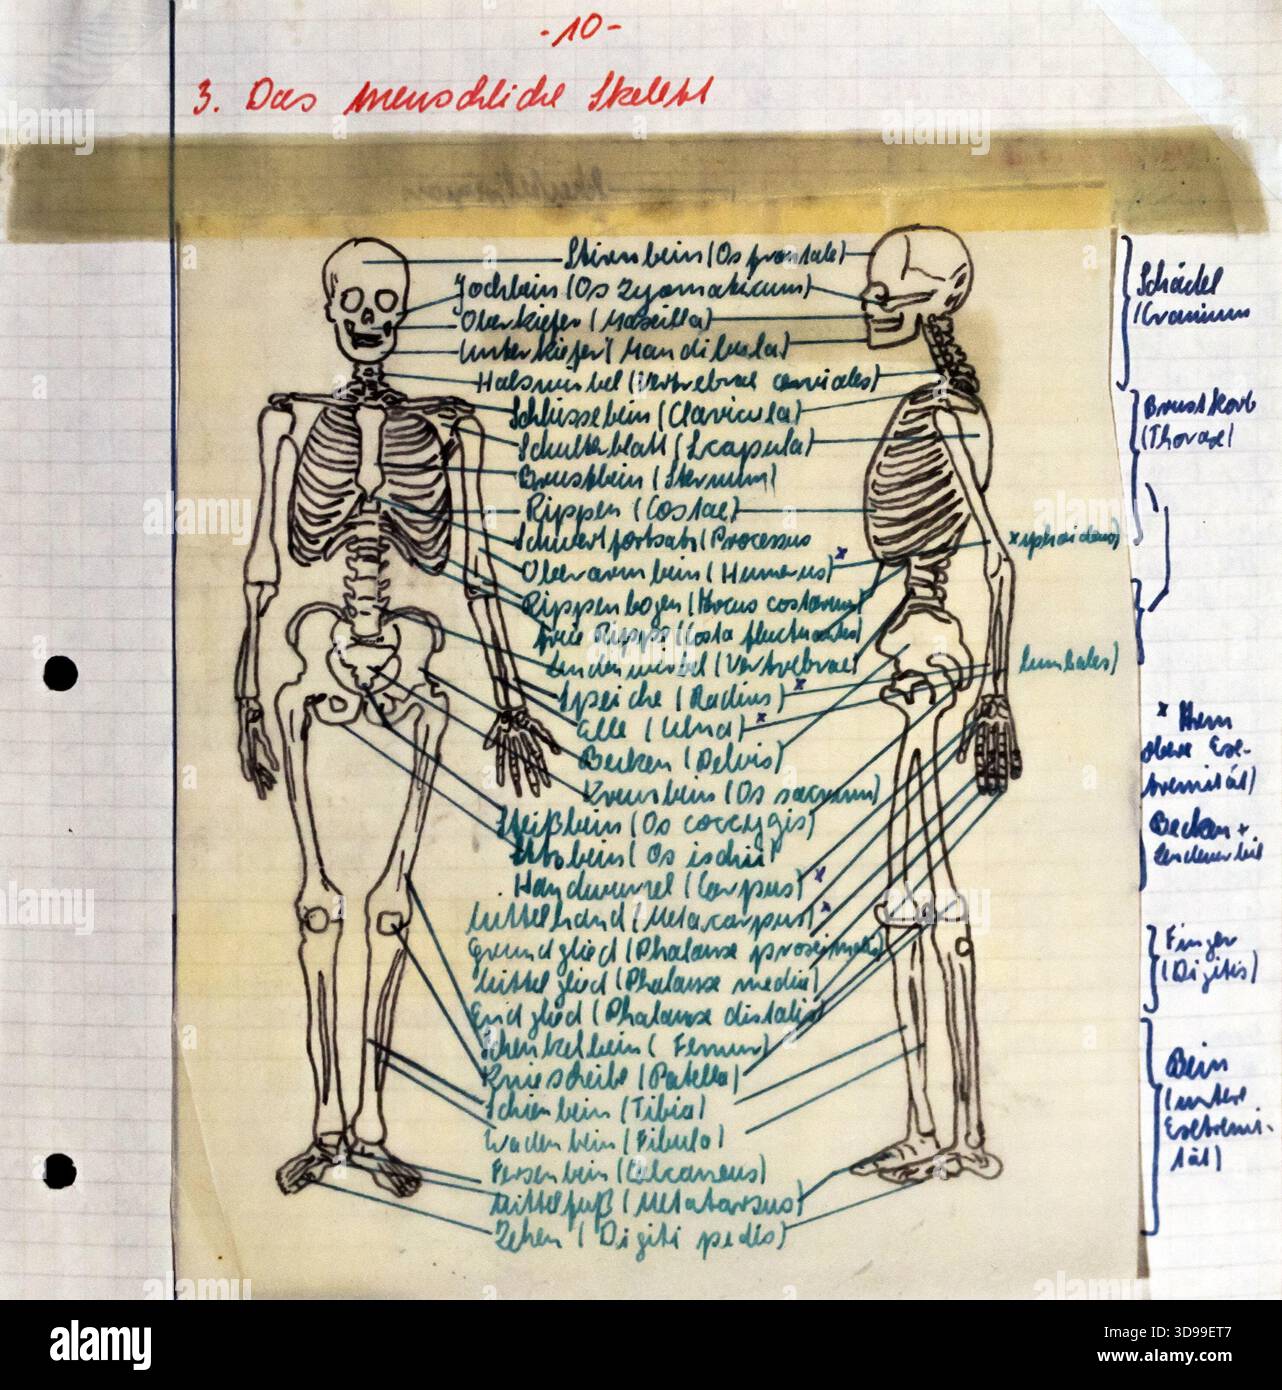 -10-
3. Das menschliche Skelett
Stirnbein (Os frontale)
Jochbein (Os zygomaticum)
Oberkiefer (Maxilla)
Unterkiefer (Mandibula)
Halswirbel (Vertebrae cerviales)
Schlüsselbein (Clavicula)
Schulterblatt (Scapula)
Brustbein (Sternum)
Rippen (Costae)
Schwertfortsatz (Processus xiphoideus)
Oberarmbein (Humerus) x
Rippenbogen (Arcus costarum)
freie Rippe (Costa fluctuantes)
Lendenwirbel (Vertebrae lumbales)
Speiche (Radius) x
Elle (Ulna) x
Becken (Pelvis)
Kreuzbein (Os sacrum)
Steißbein (Os coccygis)
Sitzbein (Os ischii)
Handwurzel (Carpus) x
Mittelhand (Metacarpus) x
Grundglied (Phalanx proximalis)
Mittelglied (Phalanx media)
Endglied (Phalanx distalis)
Schenkelbein (Femur)
Kniescheibe (Patella)
Schienbein (Tibia)
Wadenbein (Fibula)
Fersenbein (Calcaneus)
Mittelfuß (Metatarsus)
Zehen (Digiti pedis)
Schädel
(Cranium
Brustkorb
(Thorax)
x Arm
obere Ex-
tremität)
Becken +
Finger
(Digitis)
Bein
(untere
Extremi-
tät)
alamy
Image ID: 3D99ET7
www.alamy.com